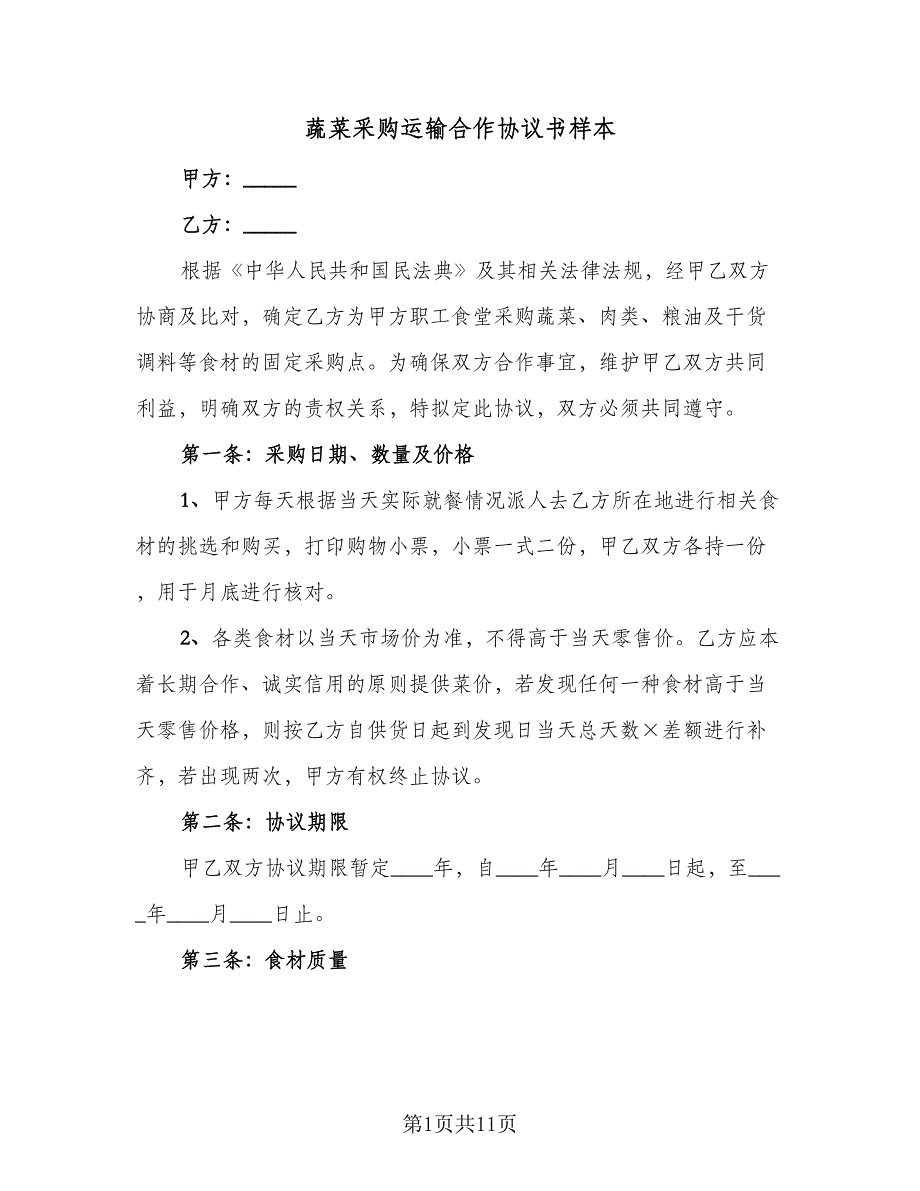 蔬菜采购运输合作协议书样本
甲方：_____
乙方：_____
根据《中华人民共和国民法典》及其相关法律法规，经甲乙双方
协商及比对，确定乙方为甲方职工食堂采购蔬菜、肉类、粮油及干货
调料等食材的固定采购点。为确保双方合作事宜，维护甲乙双方共同
利益，明确双方的责权关系，特拟定此协议，双方必须共同遵守。
第一条：采购日期、数量及价格
1、甲方每天根据当天实际就餐情况派人去乙方所在地进行相关食
材的挑选和购买，打印购物小票，小票一式二份，甲乙双方各持一份
，用于月底进行核对。
2、各类食材以当天市场价为准，不得高于当天零售价。乙方应本
着长期合作、诚实信用的原则提供菜价，若发现任何一种食材高于当
天零售价格，则按乙方自供货日起到发现日当天总天数×差额进行补
齐，若出现两次，甲方有权终止协议。
第二条：协议期限
甲乙双方协议期限暂定____年，自____年____月____日起，至___
_年____月____日止。
第三条：食材质量
第1页共11页